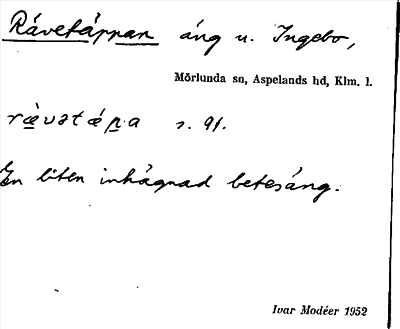 Rävetäppan äng u. Ingebo,
Mörlunda sn, Aspelands hd, Klm. l.
rævətǽpa s. 91.
En liten inhägnad betesäng.
Ivar Modéer 1952